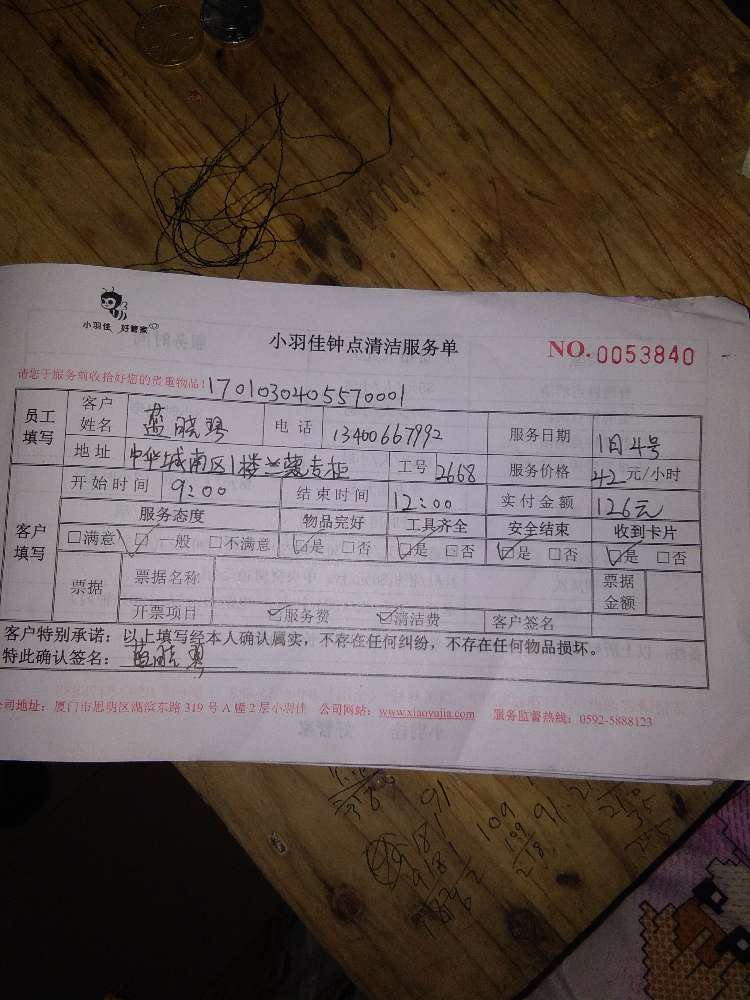 小羽佳 好管家
小羽佳钟点清洁服务单 NO. 0053840
请您于服务前收拾好您的贵重物品! 1701030405570001
员工填写 客户姓名 蓝晓琴 电话 13400667992 服务日期 1月4号
地址 中华城南区1楼兰蔻专柜 工号 2668 服务价格 42元/小时
客户填写 开始时间 9:00 结束时间 12:00 实付金额 126元
服务态度 物品完好 工具齐全 安全结束 收到卡片
□满意 ☑一般 □不满意 ☑是 □否 ☑是 □否 ☑是 □否 ☑是 □否
票据 票据名称 票据金额
开票项目 ☑服务费 ☑清洁费 客户签名
客户特别承诺:以上填写经本人确认属实,不存在任何纠纷,不存在任何物品损坏。
特此确认签名: 蓝晓琴
公司地址:厦门市思明区湖滨东路 319 号 A 幢 2 层小羽佳 公司网站:www.xiaoyujia.com 服务监督热线:0592-5888123
91
109
109
218